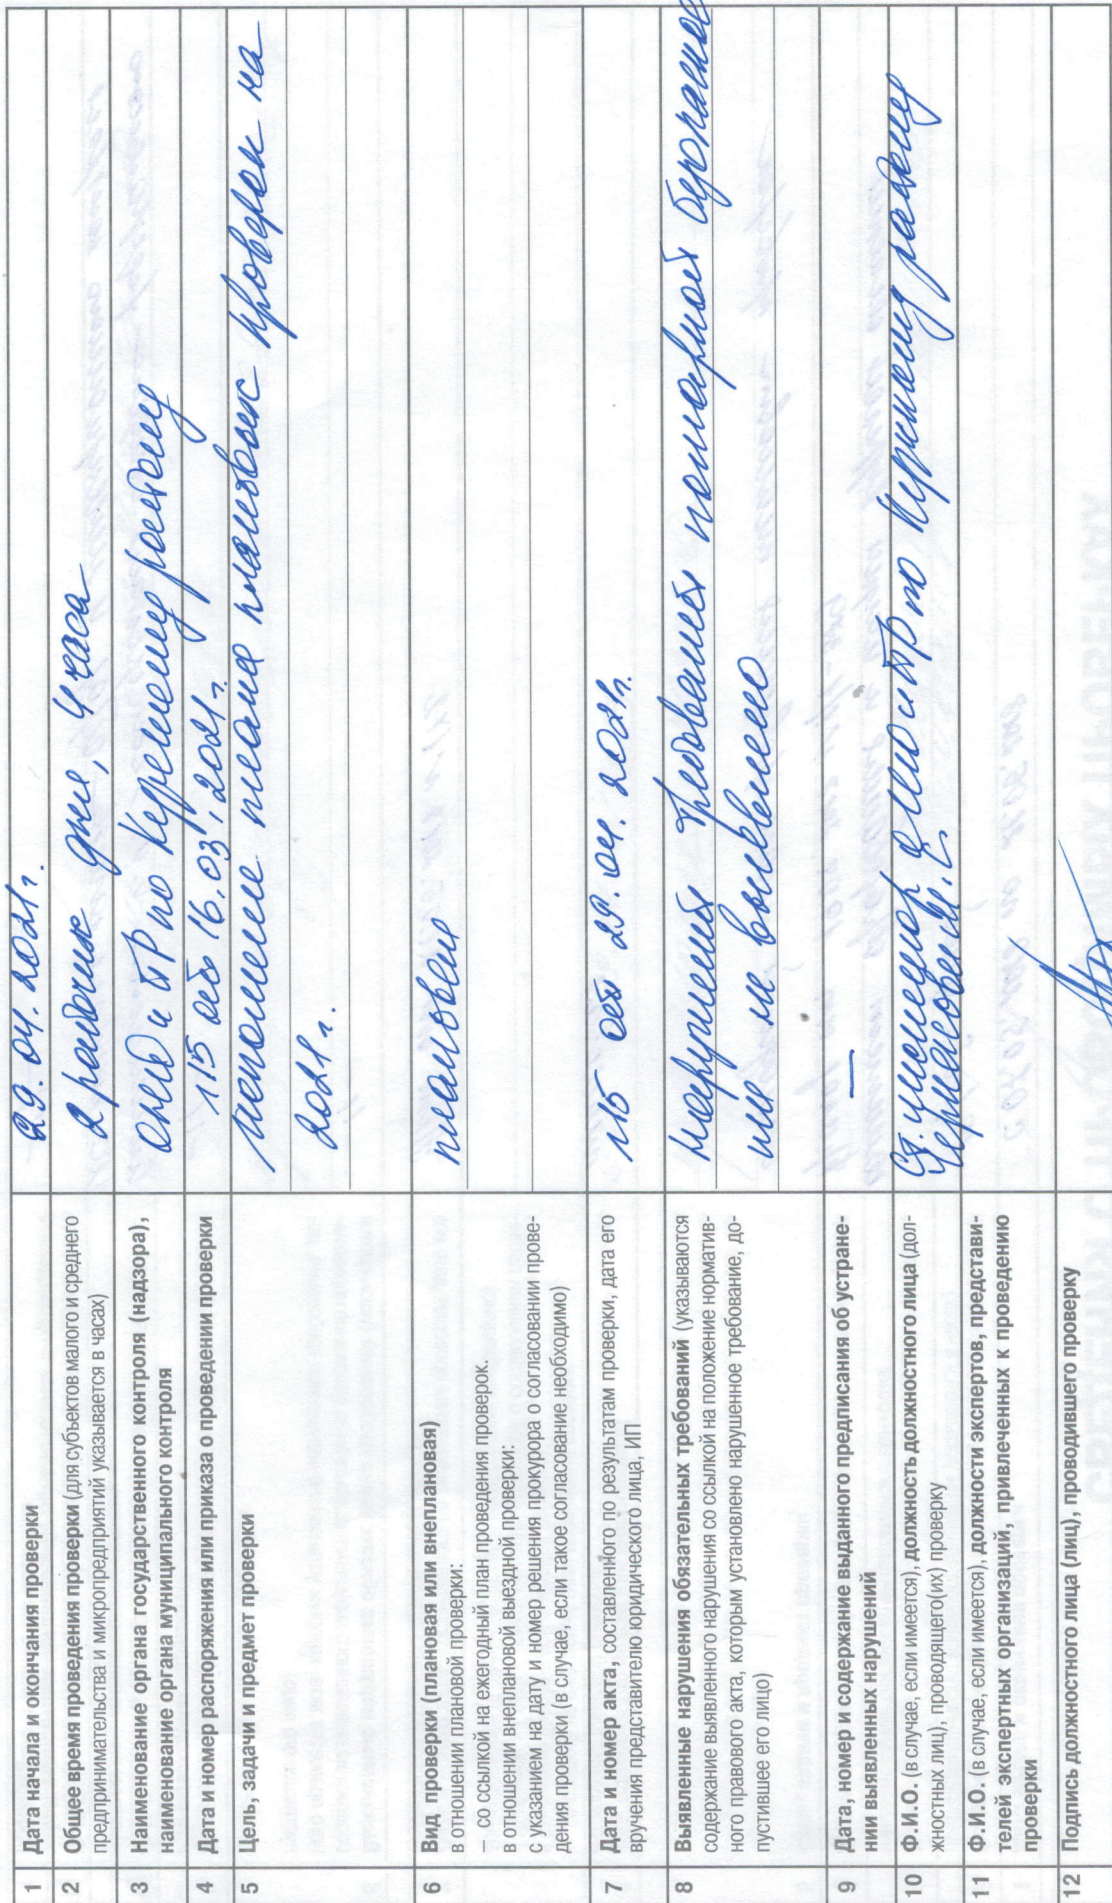 1 Дата начала и окончания проверки
29.04.2021г.
2 Общее время проведения проверки (для субъектов малого и среднего
предпринимательства и микропредприятий указывается в часах)
2 рабочих дня, 4 часа
3 Наименование органа государственного контроля (надзора),
наименование органа муниципального контроля
ОНД и ПР по
району
4 Дата и номер распоряжения или приказа о проведении проверки
115 от 16.03.2021г.
5 Цель, задачи и предмет проверки
исполнение плана плановых проверок на
2021г.
6 Вид проверки (плановая или внеплановая)
в отношении плановой проверки:
– со ссылкой на ежегодный план проведения проверок.
в отношении внеплановой выездной проверки:
с указанием на дату и номер решения прокурора о согласовании прове-
дения проверки (в случае, если такое согласование необходимо)
плановая
7 Дата и номер акта, составленного по результатам проверки, дата его
вручения представителю юридического лица, ИП
115 от 29.04.2021г.
8 Выявленные нарушения обязательных требований (указываются
содержание выявленного нарушения со ссылкой на положение норматив-
ного правового акта, которым установлено нарушенное требование, до-
пустившее его лицо)
нарушений требований пожарной безопасности
не выявлено
9 Дата, номер и содержание выданного предписания об устране-
нии выявленных нарушений
—
10 Ф.И.О. (в случае, если имеется), должность должностного лица (дол-
жностных лиц), проводящего(их) проверку
Ст. инженер ОНД и ПР по району
11 Ф.И.О. (в случае, если имеется), должности экспертов, представи-
телей экспертных организаций, привлеченных к проведению
проверки
12 Подпись должностного лица (лиц), проводившего проверку